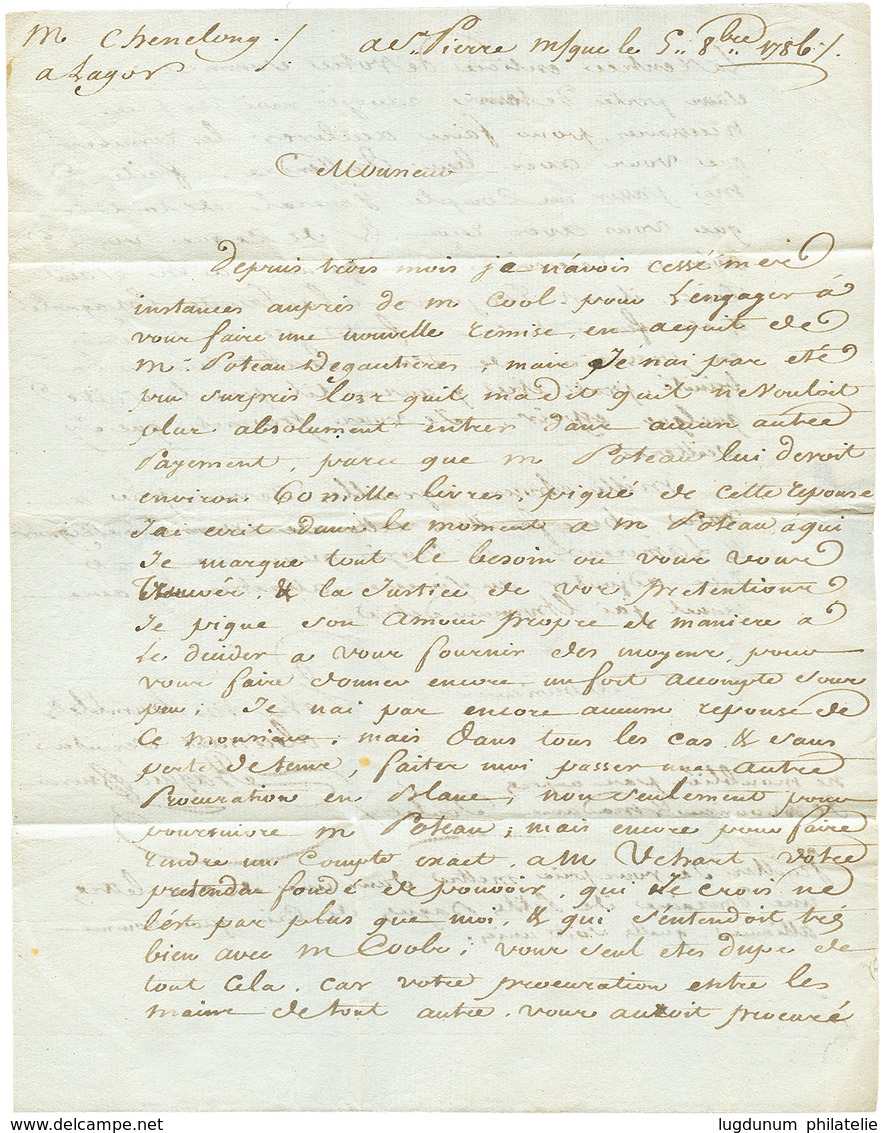 M Chenelong ./. a St. Pierre m/que le 5.. 8bre.. 1786 ./.
a Lagor
Monsieur
Depuis trois mois je n'avois cessé mes
instances auprés de m Cool pour L'engager á
vous faire une nouvelle remise, en acquit de
Mr. Poteau Degautieres, mais Je nai pas eté
peu surpris lorsquil ma dit quil ne Vouloit
plus absolument entrer dans aucun autre
Payement, parce que m Poteau lui devoit
environ 60 mille livres piqué de cette reponse
J'ai ecrit dans le moment a m Poteau, a qui
Je marque tout le besoin ou vous vous
trouvér, & la Justice de vos Pretentions
Je pique son amour propre de maniere a
Le decider a vous fournir des moyens pour
vous faire donner encore un fort accompte sous
peu; Je nai pas encore aucune reponse de
Ce monsieur; mais dans tous les cas & sans
perte de tems, faites moi passer une autre
Procuration en Blanc, non seulement pour
poursuivre m Poteau; mais encore pour faire
rendre un Compte exact, a M Uchart votre
pretendu fondé de pouvoir, qui Je crois ne
l'est pas plus que moi, & qui s'entendoit trés
bien avec m Coole; vous seul etes dupe de
tout cela. car votre procuration entre les
mains de tout autre. vous auroit procuré
delcampe.net
lugdunum philatelie